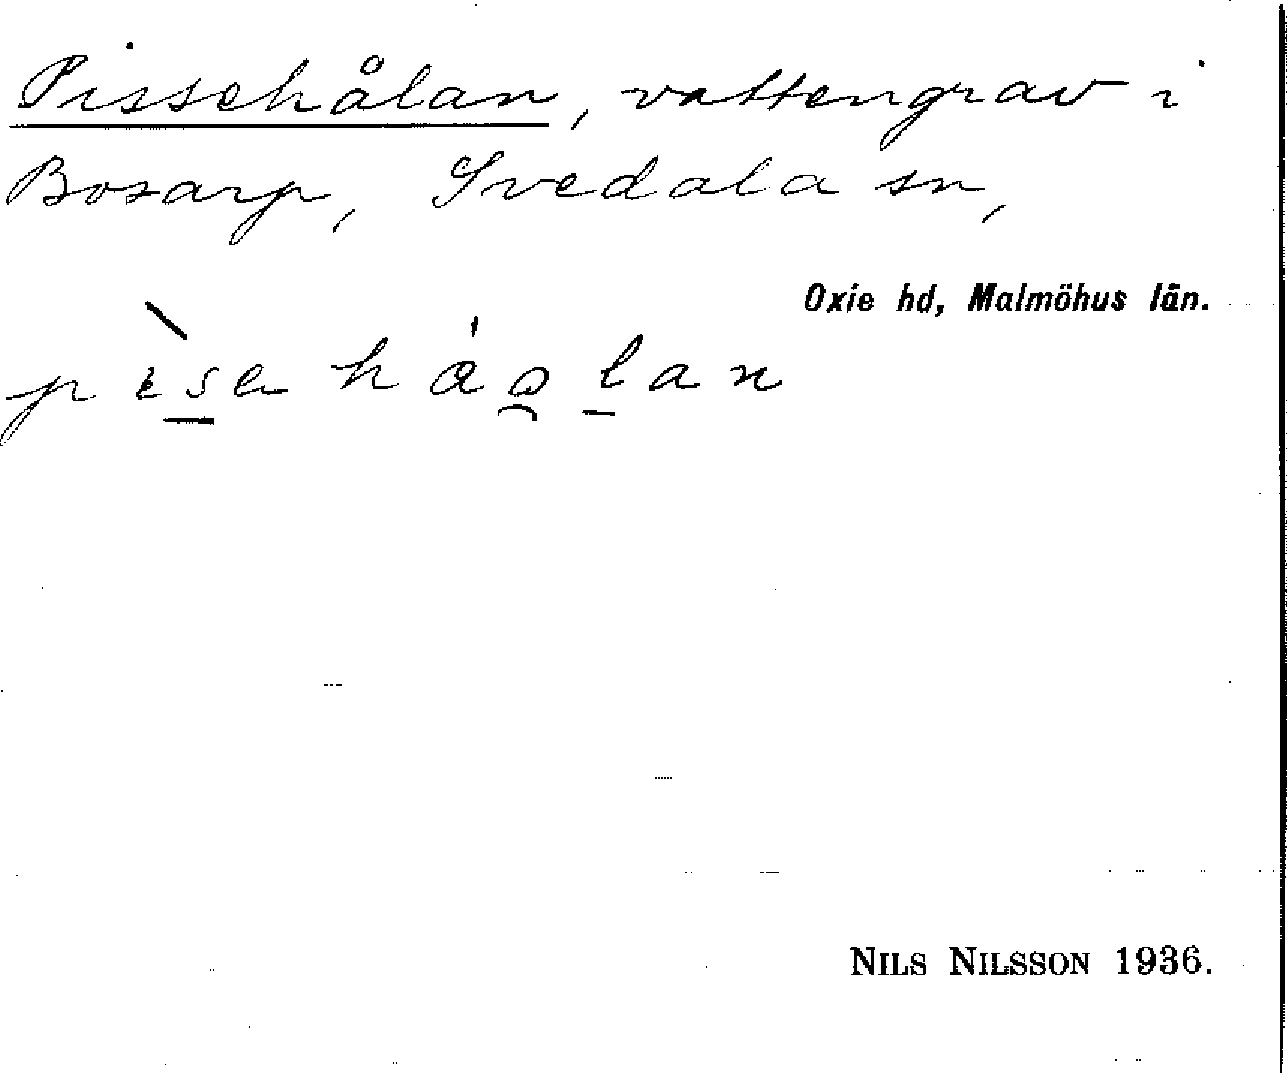 Pissehålan, vattengrav i
Bosarp, Svedala sn,
Oxie hd, Malmöhus län.
pìse háo̯lan
NILS NILSSON 1936.